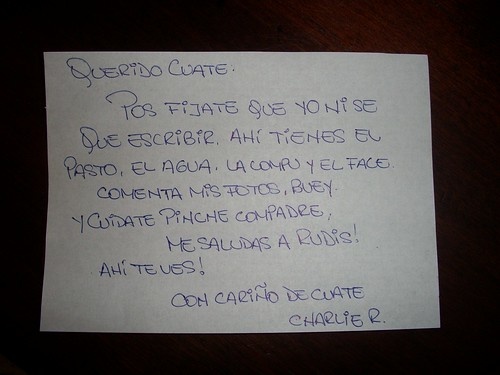 QUERIDO CUATE.
POS FIJATE QUE YO NI SE
QUE ESCRIBIR. AHÍ TIENES EL
PASTO, EL AGUA, LA COMPU Y EL FACE.
COMENTA MIS FOTOS, BUEY.
Y CUIDATE PINCHE COMPADRE,
ME SALUDAS A RUDIS!
AHÍ TE VES!
CON CARIÑO DE CUATE
CHARLIE R.